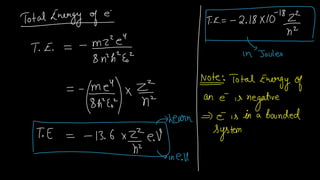 Total Energy of e⁻
T.E. = - mz²e⁴ / 8n²h²ε₀²
= -(me⁴ / 8h²ε₀²) × Z²/n²
T.E = -13.6 × Z²/n² e.V
Learn
in e.V
T.E = -2.18 × 10⁻¹⁸ Z²/n²
in Joules
Note: Total Energy of
an e⁻ is negative
⇒ e⁻ is in a bounded
system